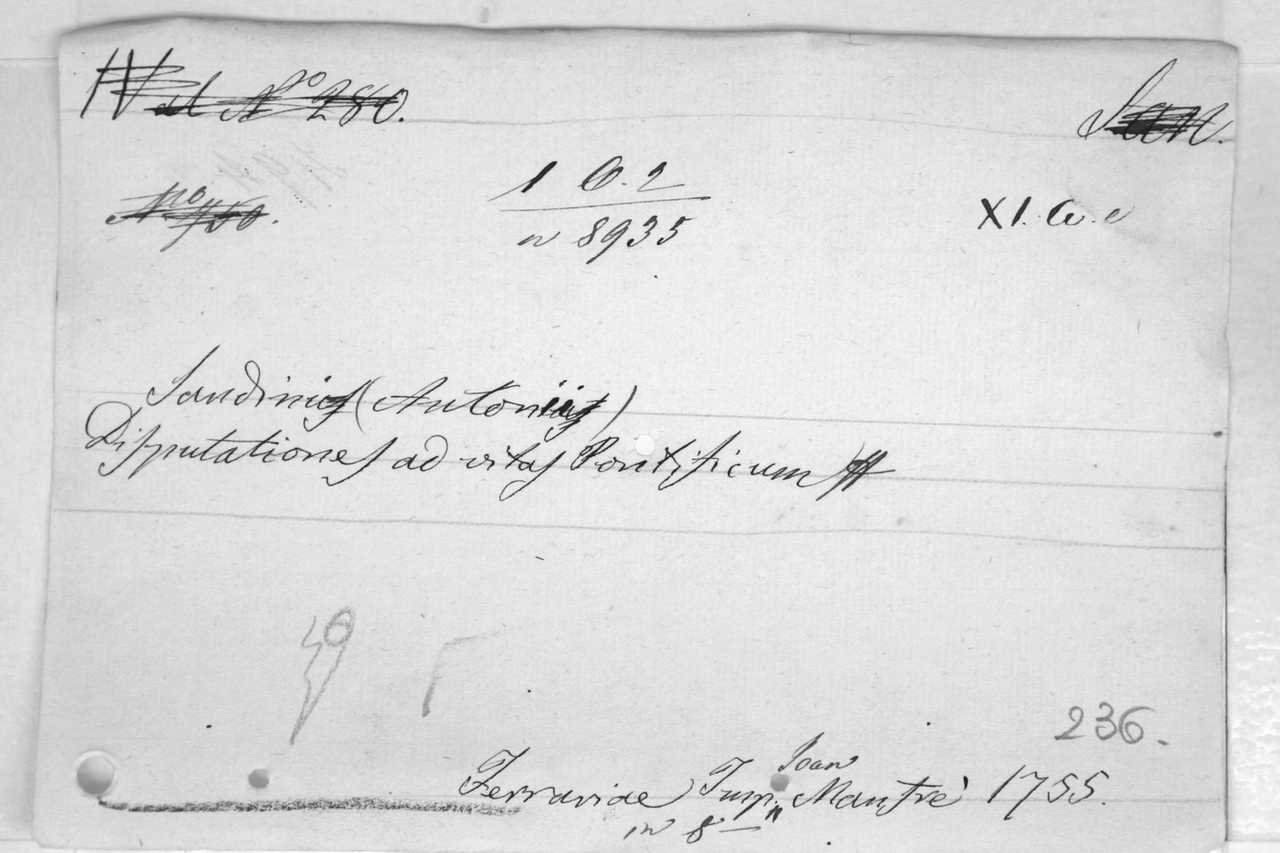 IV d Nº 280.
San.
Nº 750.
1 6.2
n 8935
XI. a. e
Sandinius (Antonius)
Disputationes ad vitas Pontificum
236.
Joan
Ferrariae Tump. Manfrè 1755.
in 8